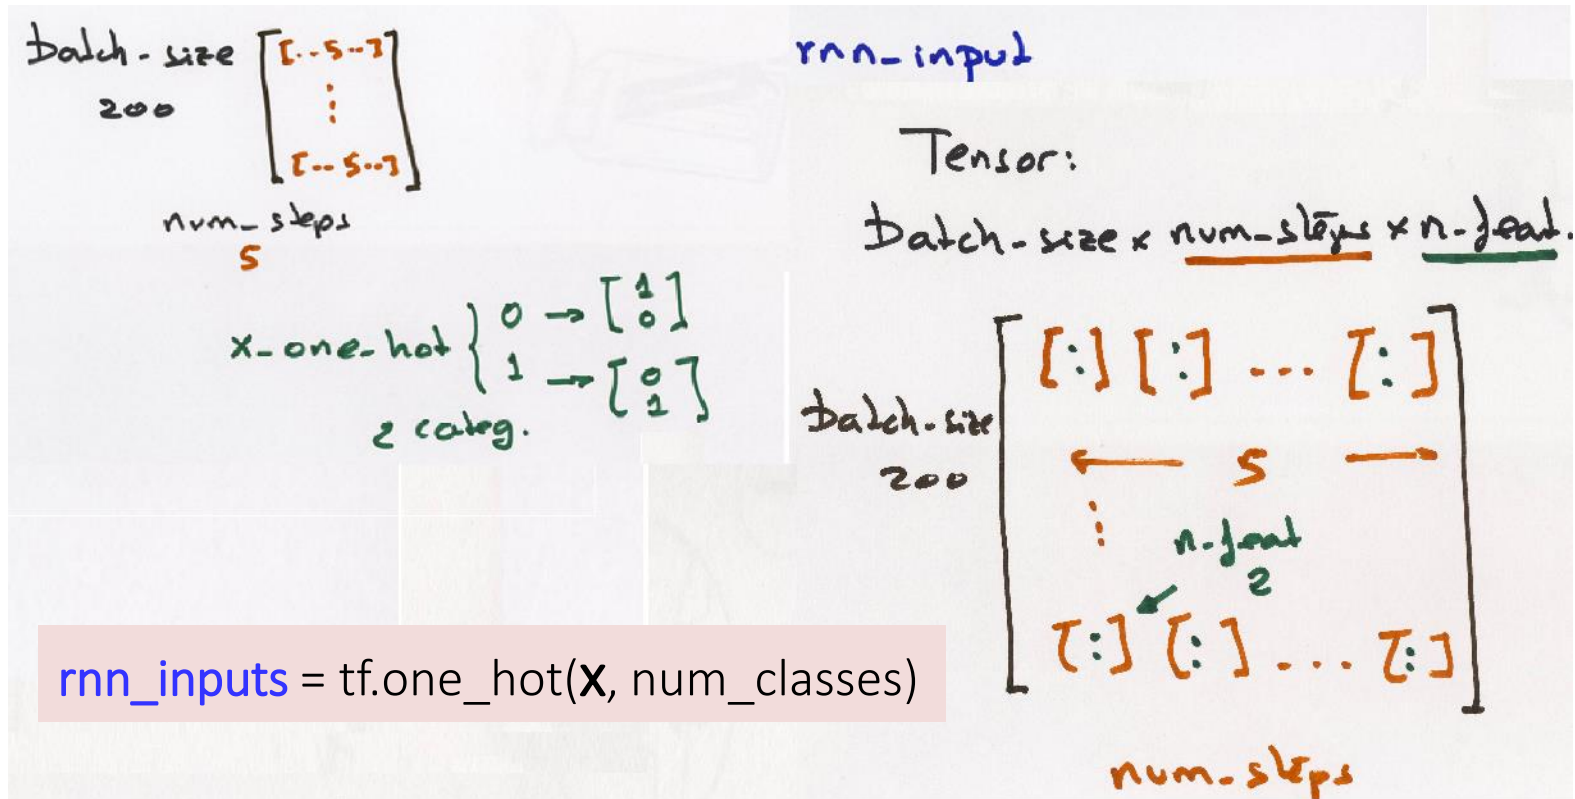 batch-size [[..5..]
200
⋮
[..5..]]
num_steps
5
x-one-hot { 0 → [1 0]
1 → [0 1]
2 categ.
rnn_inputs = tf.one_hot(x, num_classes)
rnn-input
Tensor:
batch-size x num-steps x n-feat.
[:] [:] ... [:]
batch-size
200
← 5 →
⋮
n-feat
2
[:] [:] ... [:]
num-steps